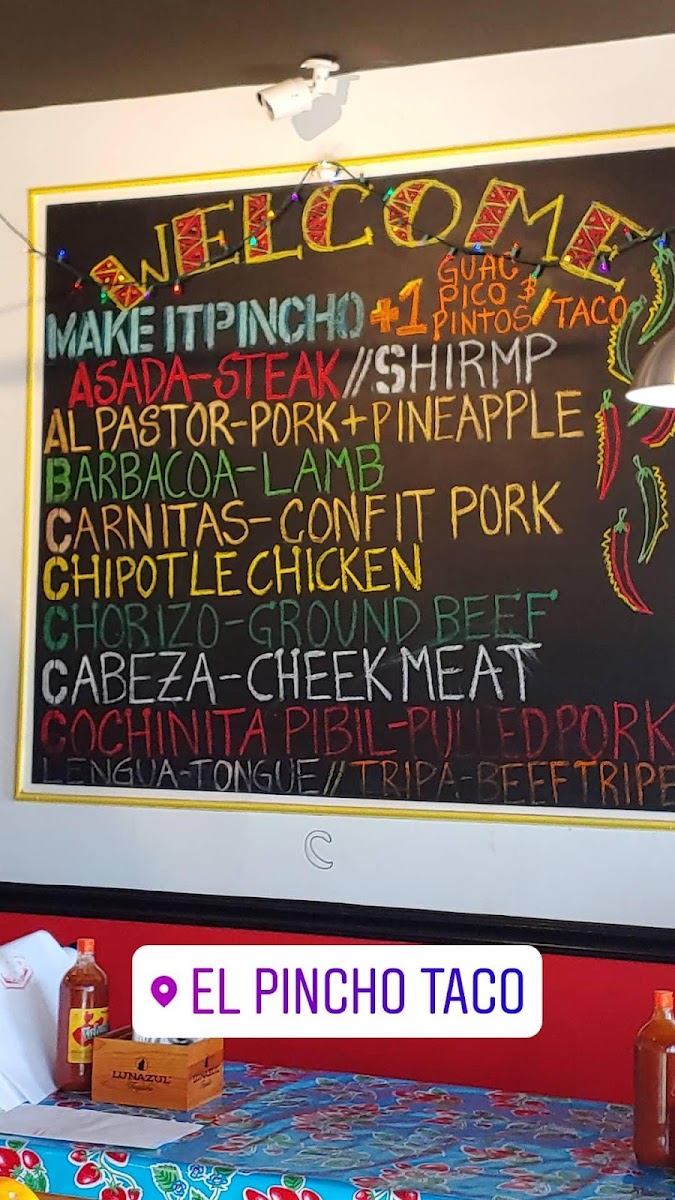 WELCOME
MAKE IT PINCHO +1 GUAC
PICO &
PINTOS /TACO
ASADA-STEAK//SHIRMP
AL PASTOR-PORK+PINEAPPLE
BARBACOA-LAMB
CARNITAS-CONFIT PORK
CHIPOTLE CHICKEN
CHORIZO-GROUND BEEF
CABEZA-CHEEK MEAT
COCHINITA PIBIL-PULLED PORK
LENGUA-TONGUE//TRIPA-BEEF TRIPE
EL PINCHO TACO
LUNAZUL